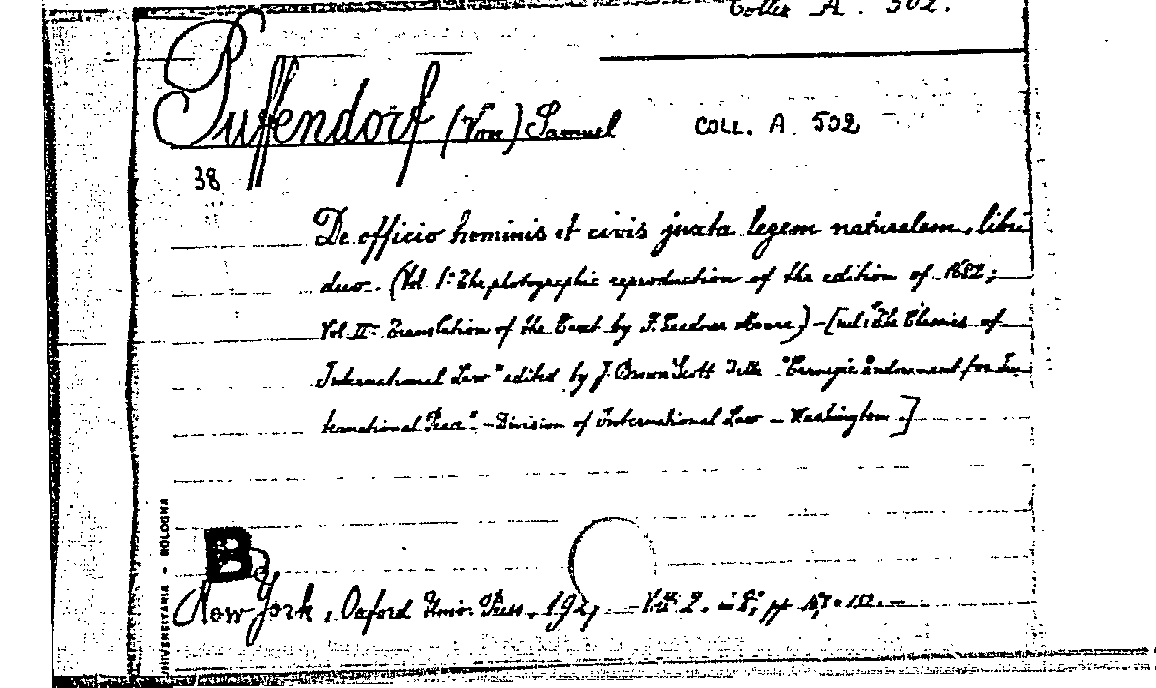 Collez A. 502.
Puffendorf (Von) Samuel COLL. A. 502
38
De officio hominis et civis juxta legem naturalem, libri
duo. (Vol. I: The photographic reproduction of the edition of 1682;
Vol. II: Translation of the Text by F. Moore) - [nel: "The Classics of
International Law" edited by J. Brown Scott "Carnegie Endowment for In-
ternational Peace". - Division of International Law - Washington.]
B
New York, Oxford Univ. Press. 192, Vol. 2. in 8°, pp.
UNIVERSITARIA - BOLOGNA